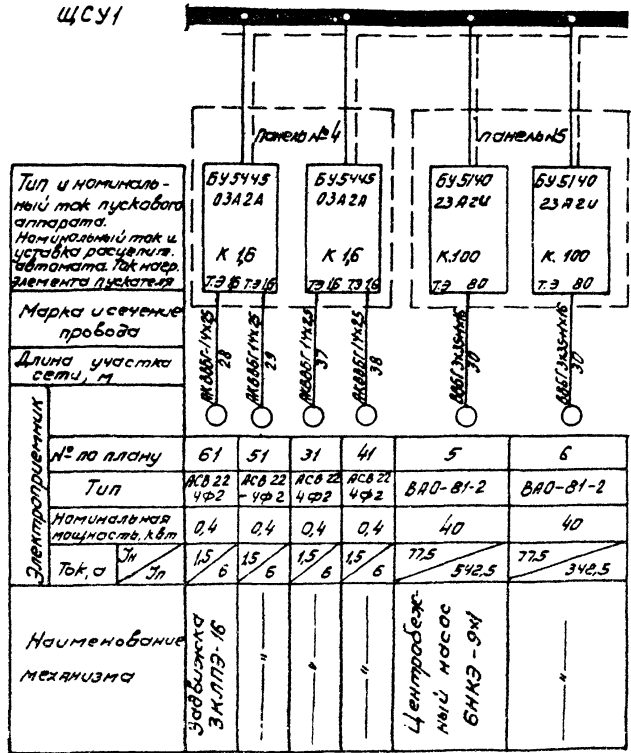 ЩСУ1
Панель №4
панель №5
Тип и номиналь-
ный ток пускового
аппарата.
Номинальный ток и
уставка расцепит.
автомата. Ток нагр.
элемента пускателя
БУ5445
03А2А
К 1,6
Т.Э 1,6 Т.Э 1,6
БУ5445
03А2А
К 1,6
ТЭ 1,6 ТЭ 1,6
БУ5140
23А2И
К.100
Т.Э 80
БУ5140
23А2И
К. 100
Т.Э 80
Марка и сечение
провода
Длина участка
сети, м
АКВВБГ-14х2,5
28
АКВВБГ14х2,5
29
АКВВБГ14х2,5
37
АКВВБГ14х2,5
38
ВВБГ3х35+1х16
30
ВВБГ3х35+1х16
30
Электроприемник
№ по плану
61 51 31 41 5 6
Тип
АСВ 22 АСВ 22 АСВ 22 АСВ 22 ВАО-81-2 ВАО-81-2
4Ф2 - 4Ф2 4Ф2 4Ф2
Номинальная
мощность, квт
0,4 0,4 0,4 0,4 40 40
Ток, а Iн / Iп
1,5 / 6 1,5 / 6 1,5 / 6 1,5 / 6 77,5 / 542,5 77,5 / 342,5
Наименование
механизма
Задвижка
ЗКЛПЭ-16
— " —
— " —
— " —
Центробеж-
ный насос
6НКЭ-9х1
— " —